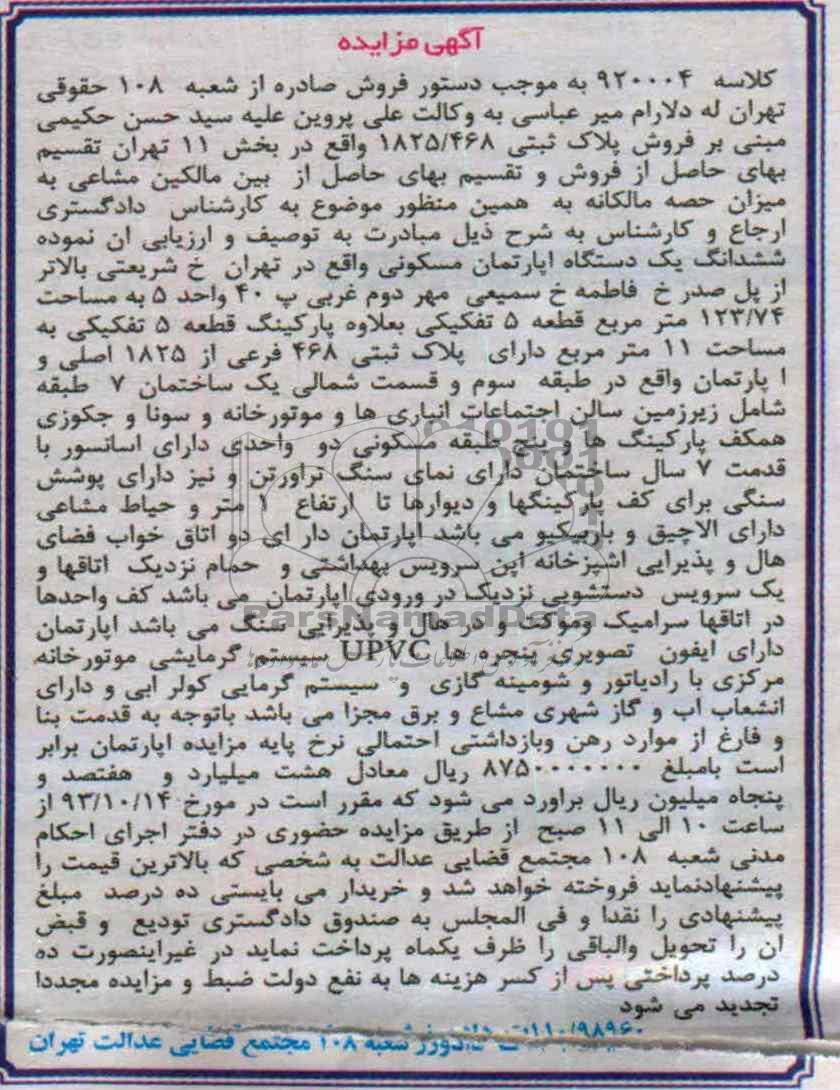 آگهی مزایده
کلاسه ۹۲۰۰۰۴ به موجب دستور فروش صادره از شعبه ۱۰۸ حقوقی
تهران له دلارام میر عباسی به وکالت علی پروین علیه سید حسن حکیمی
مبنی بر فروش پلاک ثبتی ۱۸۲۵/۴۶۸ واقع در بخش ۱۱ تهران تقسیم
بهای حاصل از فروش و تقسیم بهای حاصل از بین مالکین مشاعی به
میزان حصه مالکانه به همین منظور موضوع به کارشناس دادگستری
ارجاع و کارشناس به شرح ذیل مبادرت به توصیف و ارزیابی ان نموده
ششدانگ یک دستگاه اپارتمان مسکونی واقع در تهران خ شریعتی بالاتر
از پل صدر خ فاطمه خ سمیعی مهر دوم غربی پ ۴۰ واحد ۵ به مساحت
۱۲۳/۷۴ متر مربع قطعه ۵ تفکیکی بعلاوه پارکینگ قطعه ۵ تفکیکی به
مساحت ۱۱ متر مربع دارای پلاک ثبتی ۴۶۸ فرعی از ۱۸۲۵ اصلی و
ا پارتمان واقع در طبقه سوم و قسمت شمالی یک ساختمان ۷ طبقه
شامل زیرزمین سالن اجتماعات انباری ها و موتورخانه و سونا و جکوزی
همکف پارکینگ ها و پنج طبقه مسکونی دو واحدی دارای اسانسور با
قدمت ۷ سال ساختمان دارای نمای سنگ تراورتن و نیز دارای پوشش
سنگی برای کف پارکینگها و دیوارها تا ارتفاع ۱ متر و حیاط مشاعی
دارای الاچیق و باربیکیو می باشد اپارتمان دار ای دو اتاق خواب فضای
هال و پذیرایی اشپزخانه اپن سرویس بهداشتی و حمام نزدیک اتاقها و
یک سرویس دستشویی نزدیک در ورودی اپارتمان می باشد کف واحدها
در اتاقها سرامیک وموکت و در هال و پذیرایی سنگ می باشد اپارتمان
دارای ایفون تصویری پنجره ها UPVC سیستم گرمایشی موتورخانه
مرکزی با رادیاتور و شومینه گازی و سیستم گرمایی کولر ابی و دارای
انشعاب اب و گاز شهری مشاع و برق مجزا می باشد باتوجه به قدمت بنا
و فارغ از موارد رهن وبازداشتی احتمالی نرخ پایه مزایده اپارتمان برابر
است بامبلغ ۸۷۵۰۰۰۰۰۰۰ ریال معادل هشت میلیارد و هفتصد و
پنجاه میلیون ریال براورد می شود که مقرر است در مورخ ۹۳/۱۰/۱۴ از
ساعت ۱۰ الی ۱۱ صبح از طریق مزایده حضوری در دفتر اجرای احکام
مدنی شعبه ۱۰۸ مجتمع قضایی عدالت به شخصی که بالاترین قیمت را
پیشنهادنماید فروخته خواهد شد و خریدار می بایستی ده درصد مبلغ
پیشنهادی را نقدا و فی المجلس به صندوق دادگستری تودیع و قبض
ان را تحویل والباقی را ظرف یکماه پرداخت نماید در غیراینصورت ده
درصد پرداختی پس از کسر هزینه ها به نفع دولت ضبط و مزایده مجددا
تجدید می شود
۱۱۰/۹۸۹۶۰
دادورز شعبه ۱۰۸ مجتمع قضایی عدالت تهران
ParsNamadData